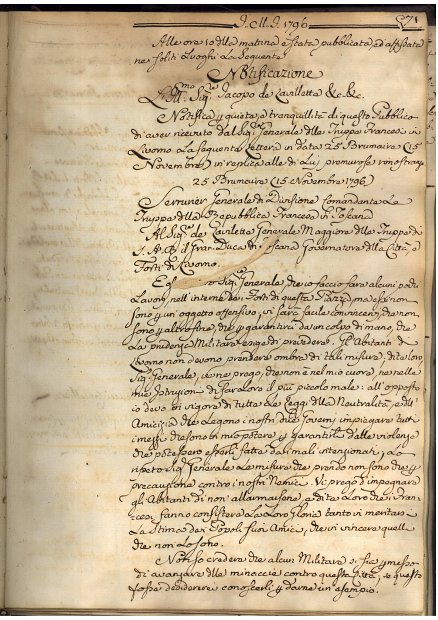 J. M. J. 1796
71
Alle ore 10 della mattina è stata pubblicata, ed affissata
ne soliti Luoghi La Seguente
Notificazione
L'Ill.mo Sig.re Jacopo de Lavillette &c. &c.
Notifica p quiete, e tranquillità di questo Pubblico
di aver ricevuto dal Sig.r Generale delle Truppe Francesi in
Livorno La seguente Lettera in data 25 Brumaire (15
Novembre) in replica alle di Lui premurose rimostranze
25 Brumaire (15 Novembre 1796)
Serrurier Generale di Divisione Comandante Le
Truppe della Repubblica Francese in Toscana
Al Sig.r de Lavillette Generale Maggiore delle Truppe di
S. A. R. il Gran Duca di Toscana Governatore della Città, e
Forti di Livorno.
Sig.r Generale, che io faccio fare alcuni piccoli
Lavori nell'interno dei Forti di questa Piazza, ma essi non
sono p un oggetto offensivo, vi sarà facile convincervi, che non
sono p altro fine, che p garantirvi da un colpo di mano, che
La prudenza Militare esige di prevedere. Gl'Abitanti di
Livorno non devono prendere ombra di tali misure, ditelo loro
Sig.r Generale, ve ne prego, che non è nel mio cuore, ne nelle
mie Istruzioni di far Loro il più piccolo male: all'opposto
io devo in vigore di tutte Le Leggi della Neutralità, e dell'
Amicizia che Legano i nostri due Governi impiegare tutti
i mezzi che sono in mio potere p garantirli dalle violenze
che potessero esserli fatte dai mali intenzionati; Lo
ripeto Sig.r Generale Le misure che prendo non sono che p
precauzione contro i nostri Nemici. Vi prego d'impegnare
gli Abitanti di non allarmarsene, e dite a Loro che i Fran-
cesi fanno consistere La Loro Gloria tanto in meritare
La Stima dei Popoli suoi Amici, che in vincere quelli
che non Lo sono.
Non so credere che alcun Militare si sia permesso
di avanzare delle minaccie contro questa Città, se questo
fosse desidererei conoscerli p darne un esempio.